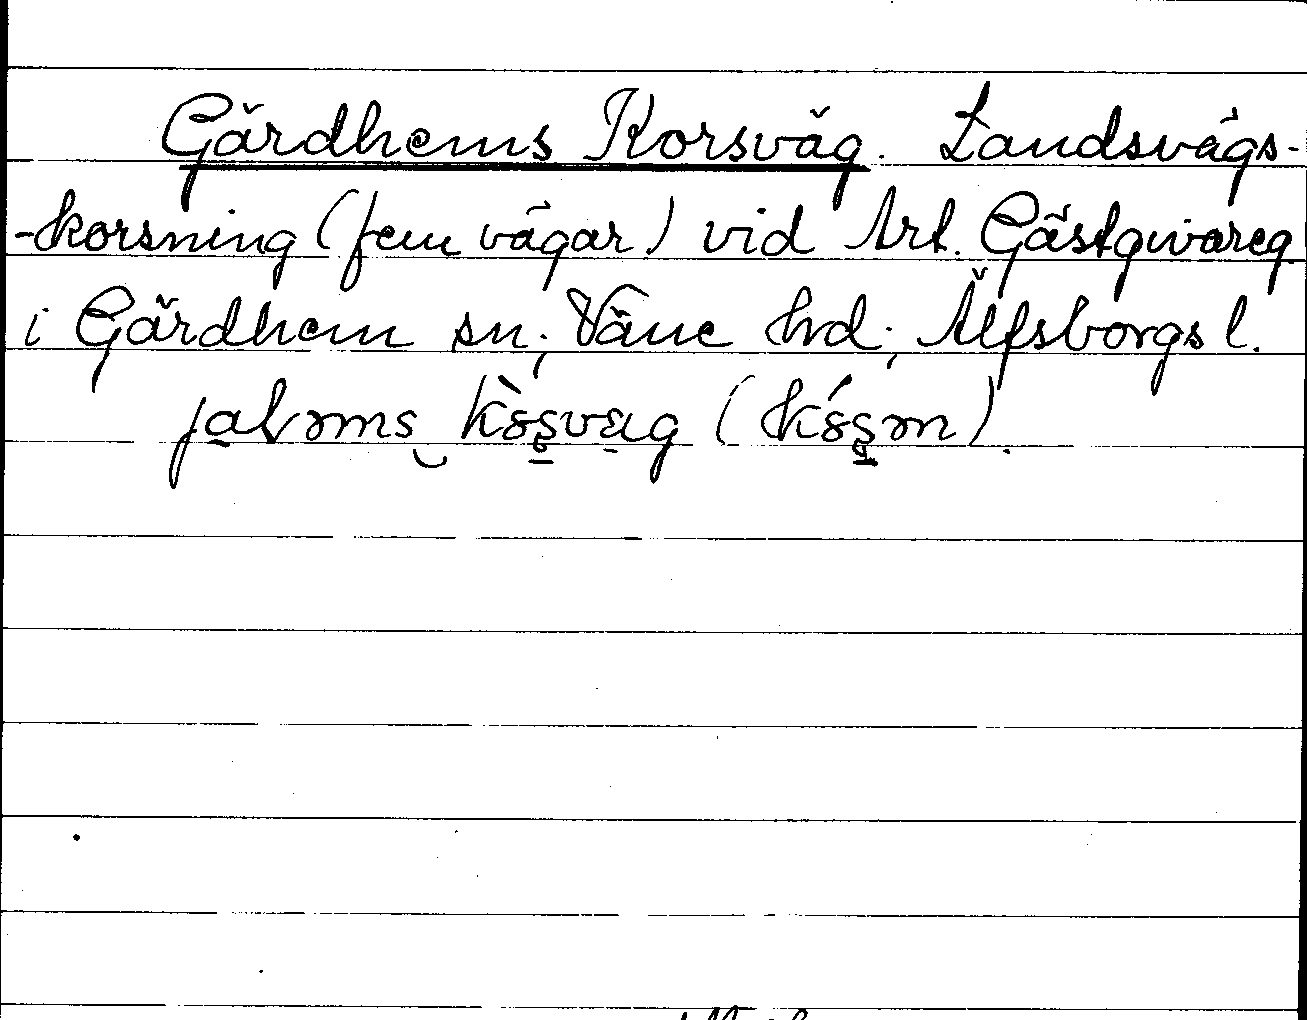 Gärdhems Korsväg. Landsvägs-
-korsning (fem vägar) vid Art. Gästgivareg.
i Gärdhem sn; Väne hrd; Älfsborgs l.